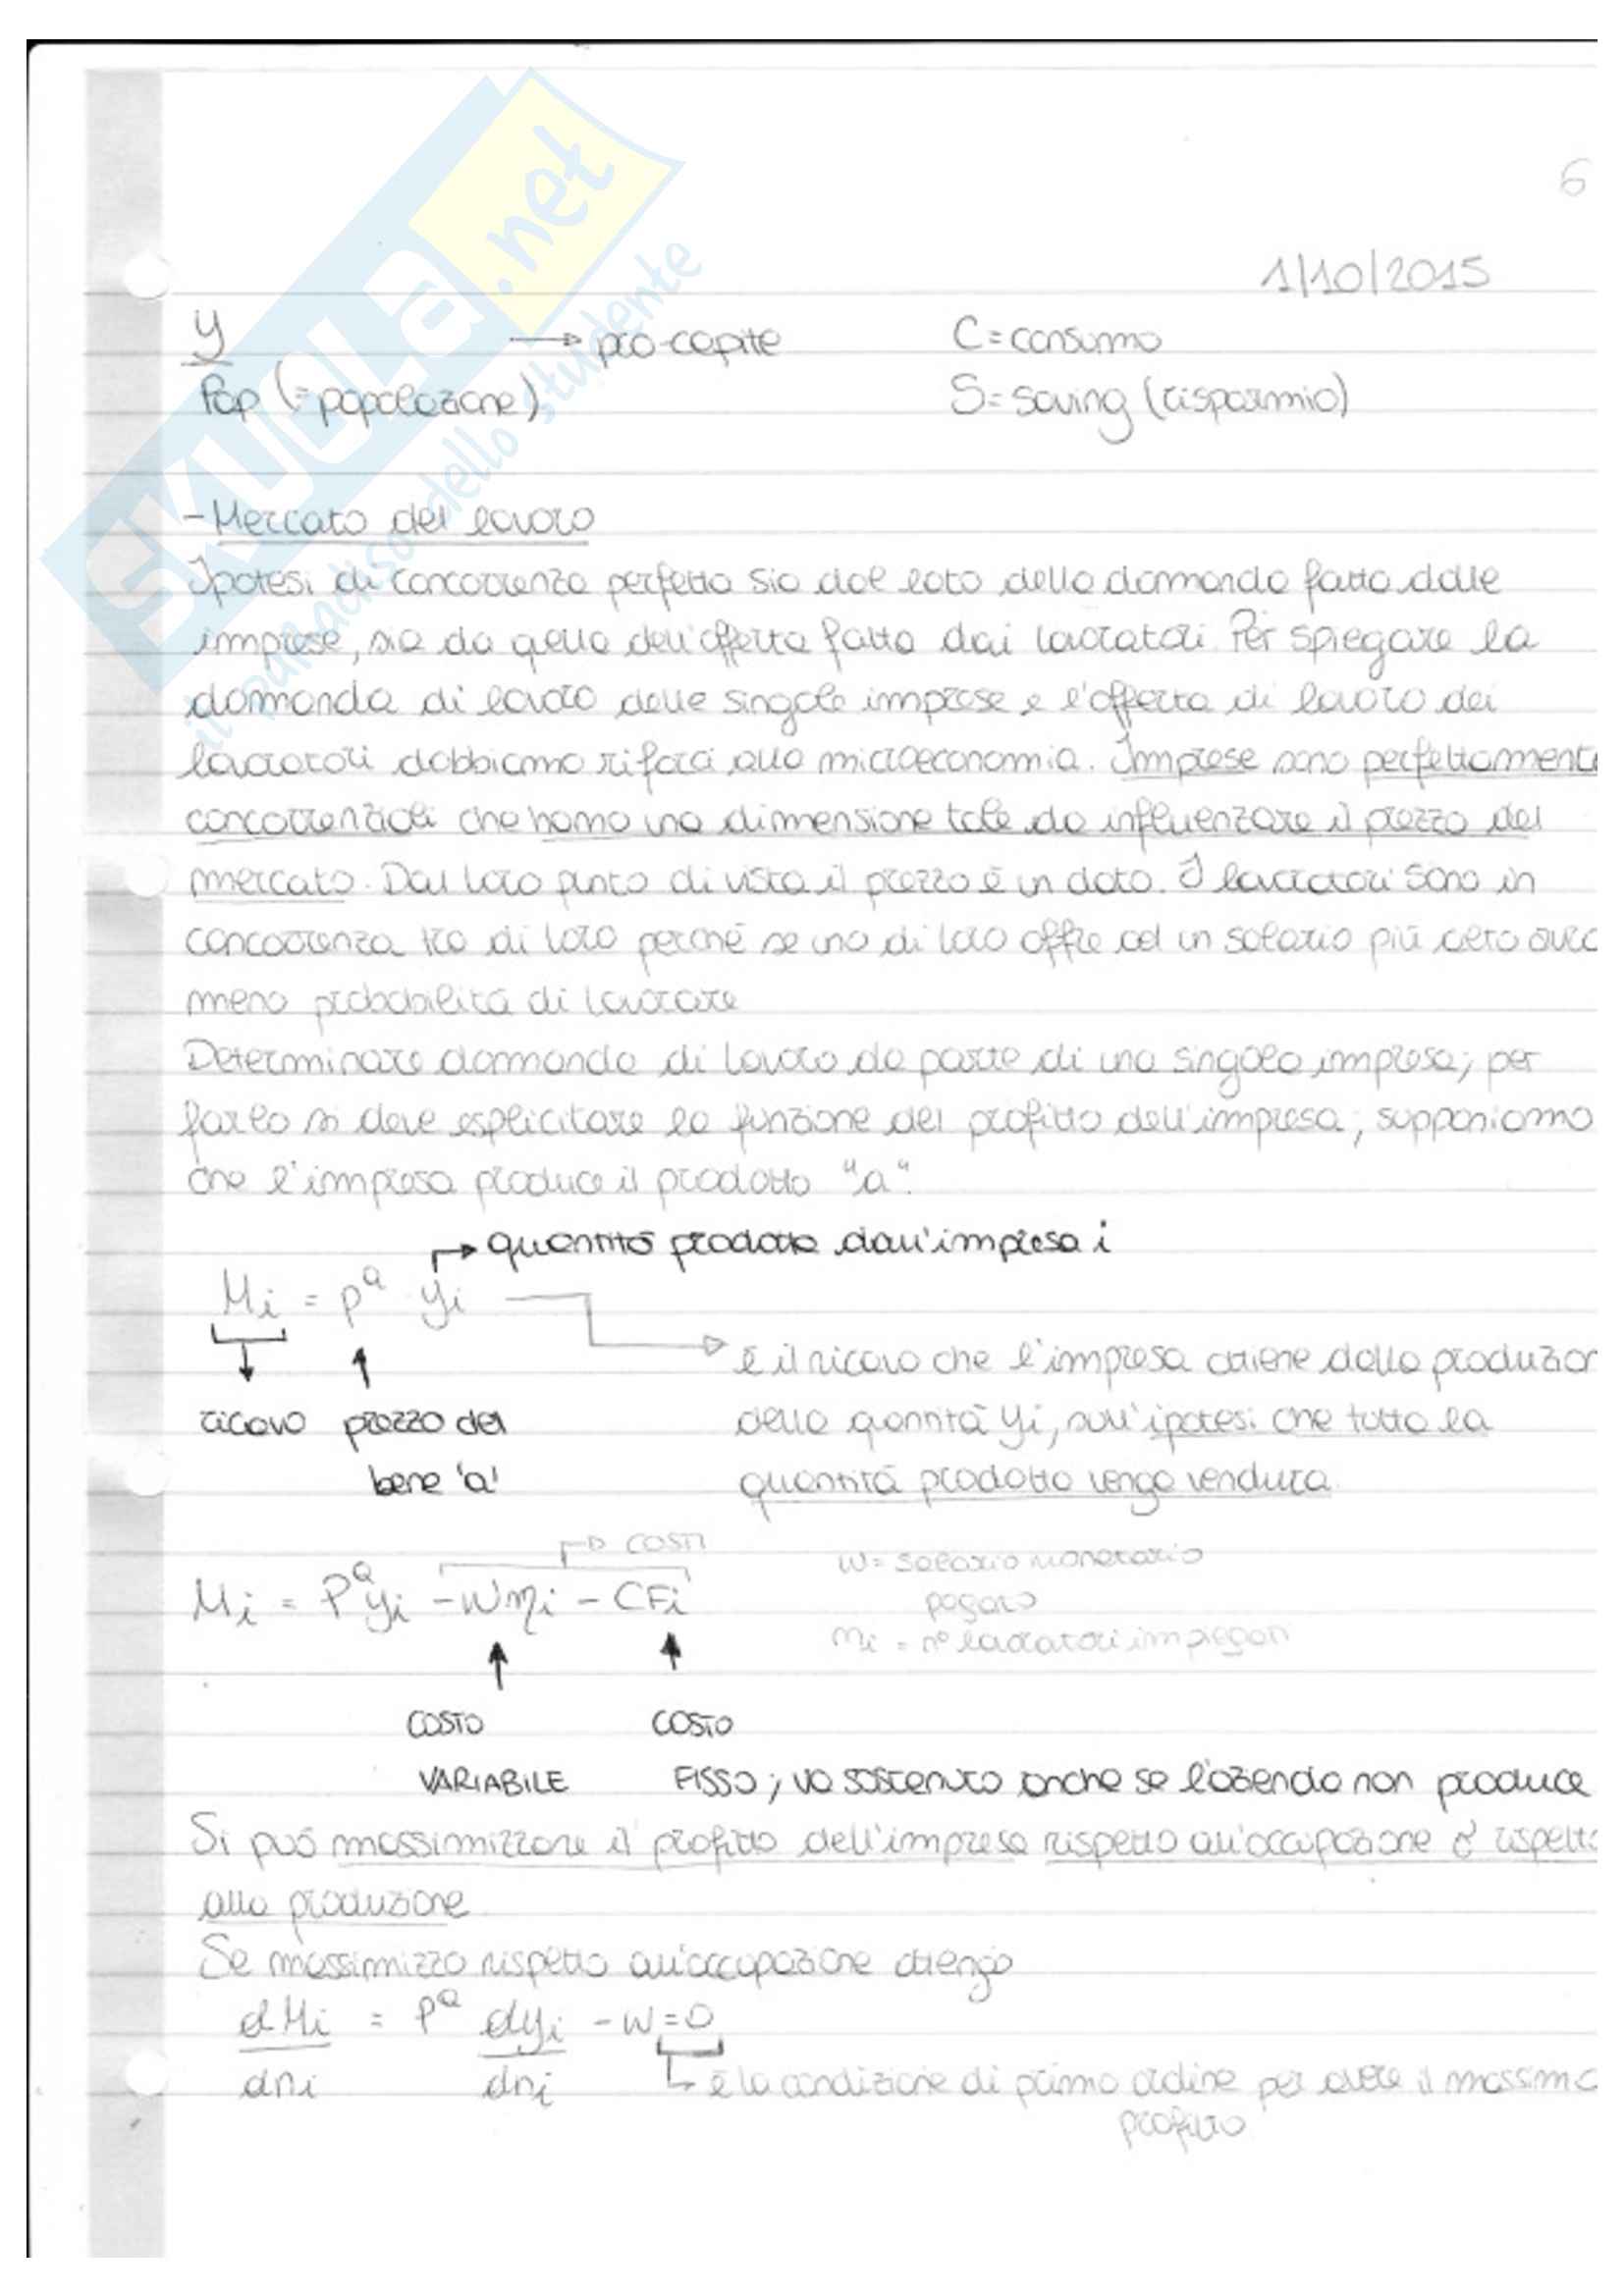 SKUOLA.net
il paradiso dello studente
6
1/10/2015
y → pro-capite C=consumo
Pop (=popolazione) S=saving (risparmio)
- Mercato del lavoro
Ipotesi di concorrenza perfetta sia dal lato della domanda fatta dalle
imprese, sia da quello dell'offerta fatta dai lavoratori. Per spiegare la
domanda di lavoro delle singole imprese e l'offerta di lavoro dei
lavoratori dobbiamo rifarci alla microeconomia. Imprese sono perfettamente
concorrenziali che hanno una dimensione tale da influenzare il prezzo del
mercato. Dal loro punto di vista il prezzo è un dato. I lavoratori sono in
concorrenza tra di loro perché se uno di loro offre ad un salario più alto avrà
meno probabilità di lavorare
Determinare domanda di lavoro da parte di una singola impresa; per
farlo si deve esplicitare la funzione del profitto dell'impresa; supponiamo
che l'impresa produce il prodotto "a".
→ quantità prodotta dall'impresa i
Mi = pᵃ yi
è il ricavo che l'impresa ottiene dalla produzion
ricavo prezzo del della quantità yi, sull'ipotesi che tutta la
bene 'a' quantità prodotta venga venduta.
→ costi w= salario monetario
Mi = Pᵃyi -Wηi - CFi pagato
ni = n° lavoratori impiegati
COSTO COSTO
VARIABILE FISSO; va sostenuto anche se l'azienda non produce
Si può massimizzare il profitto dell'impresa rispetto all'occupazione o rispetto
alla produzione
Se massimizzo rispetto all'occupazione ottengo
dMi = Pᵃ dyi - W=0
dni dni è la condizione di primo ordine per avere il massimo
profitto